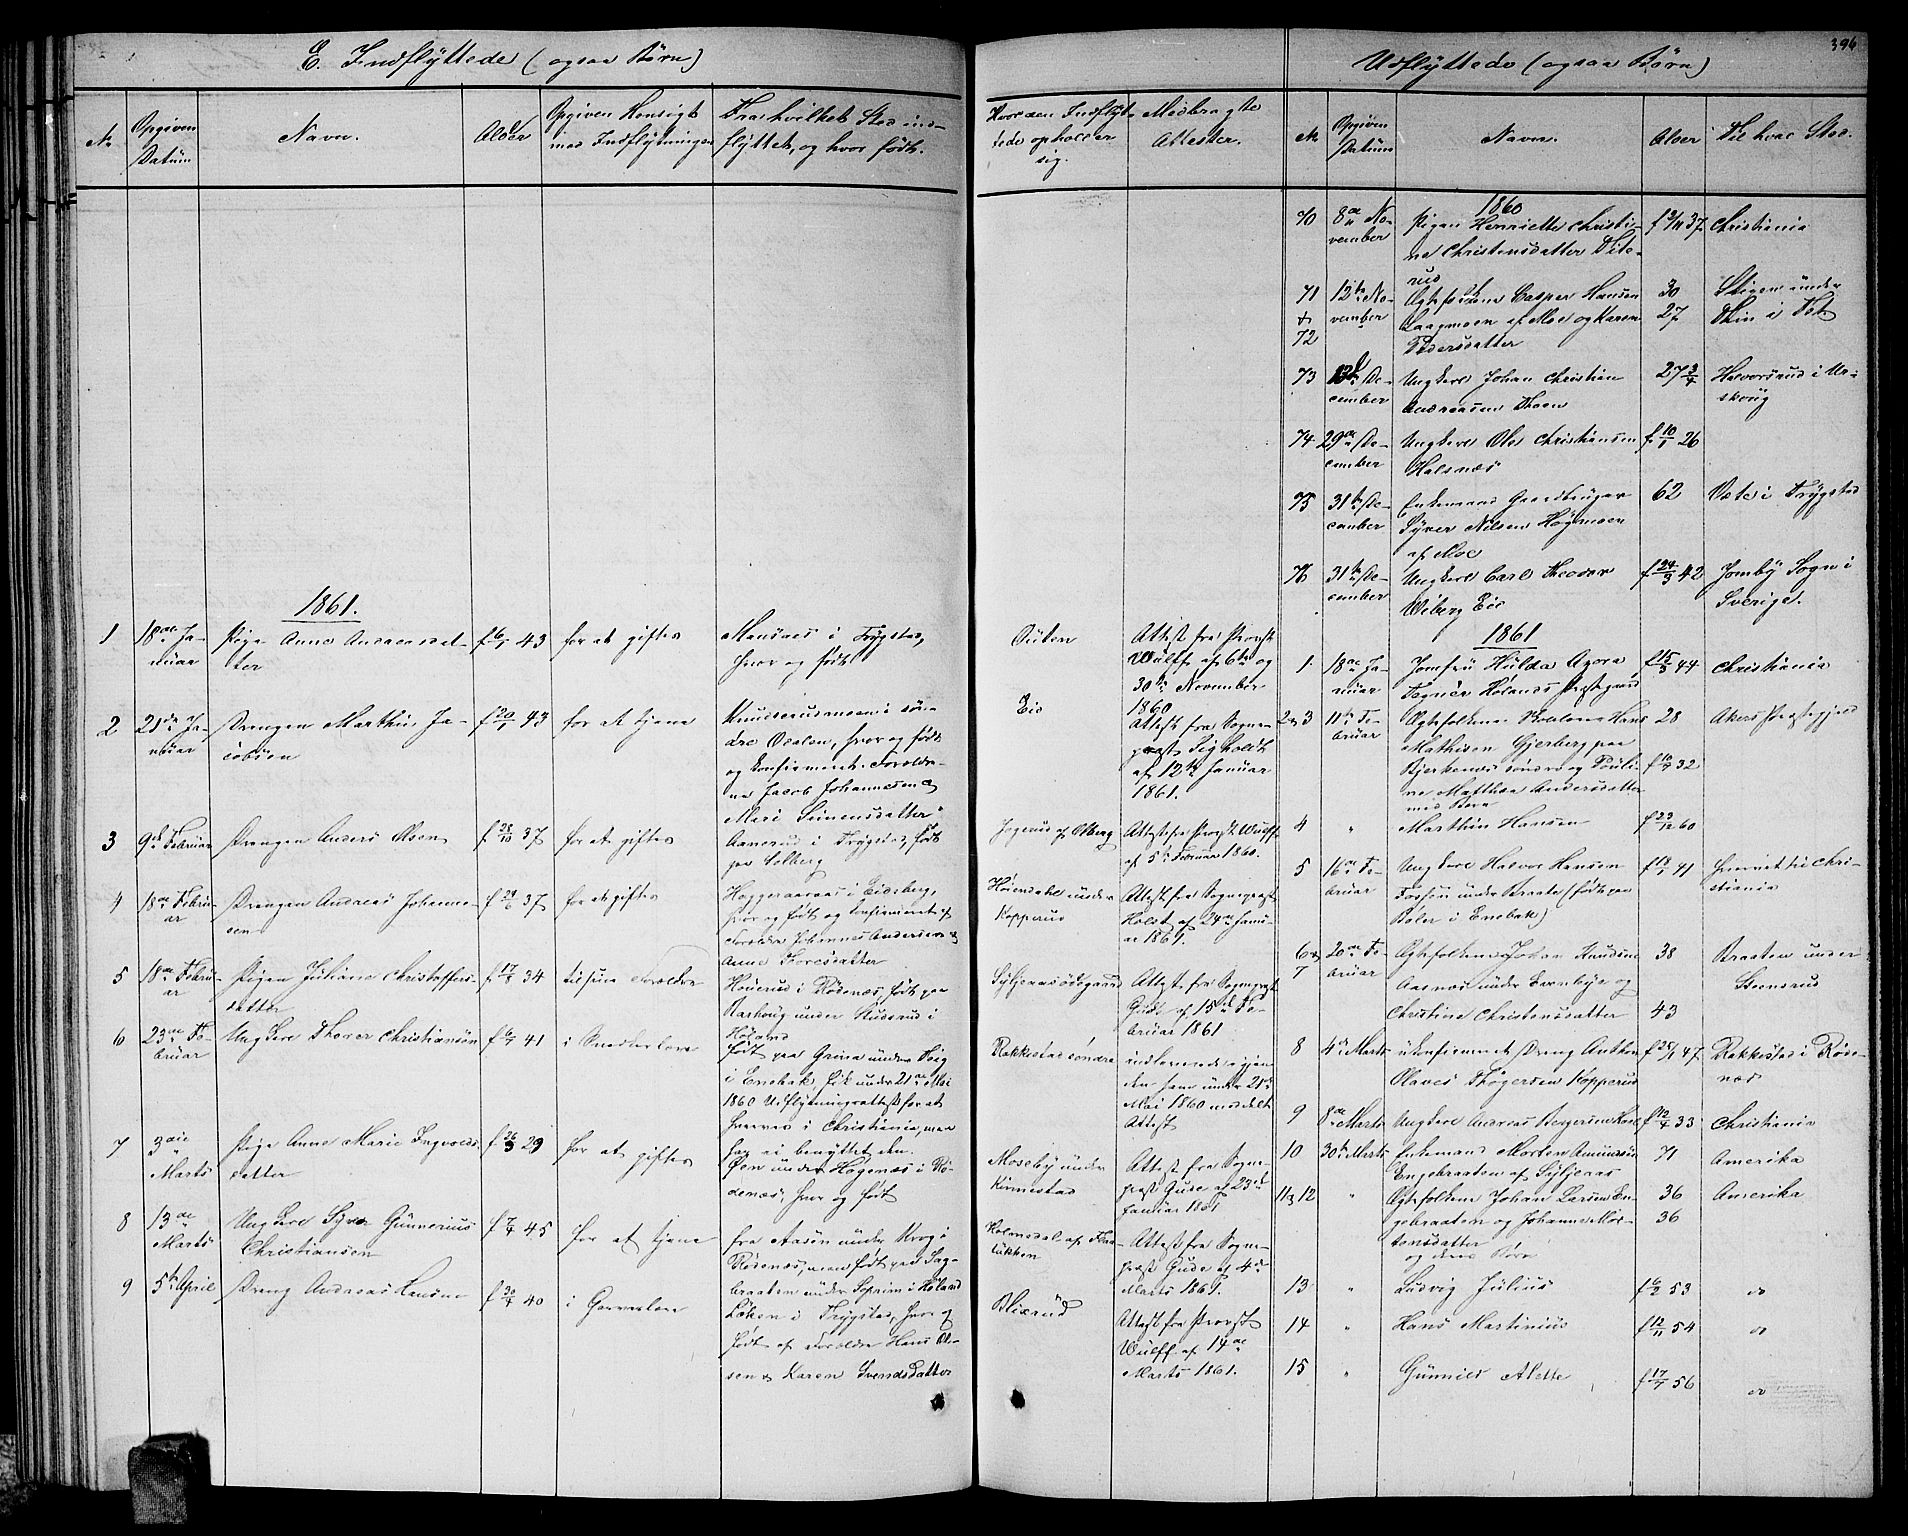 E. Indflÿttede (ogsaa Børn)
No
Opgiven
Datum
Navn.
Alder
Opgiven Hensigt
med Indflÿtningen
Fra hvilket Sted ind-
flÿttet, og hvor født.
Hvor den Indflÿt-
tede opholder
sig.
Medbragte
Attester.
1861.
1
18de Ja-
nuar
Pige Anne Andreasdat-
ter
f 6/1 43
for at giftes
Mansnes i Trÿgstad,
hvor og født
Attest fra Provst
Wulff af 6te og
30te November
1860
2
21de Ja-
nuar
Drengen Marthin Ja-
cobsen
f 20/8 43
for at tjene
Knudserudmoen i søn-
dre Odalen, hvor og født
og konfirmeret. Foreldre-
ne Jacob Johannesen og
Mari Simensdatter
Eid
Attest fra Sogne-
prest Sigholdt
af 12te Januar
1861.
3
9de Februar
Drengen Anders Olsen
f. 28/10 37
for at giftes
Aanerud i Trÿgstad, født
paa Solberg
Jogerud af Olberg
Attest fra Provst Wulff
af 5te Februar 1860.
4
18de Febru-
ar
Drengen Andreas Johanne-
sen
f 29/6 37
for at giftes
Heggeraaraas i Eidsberg,
hvor og født og konfirmeret af
Foreldre Johannes Andersen og
Anne Toresdatter
Høiendahl under
Kopperud
Attest fra Sogneprest
Holst af 24de Janu-
ar 1861.
5
18de Febru-
ar
Pigen Juliane Christoffers-
datter
f 17/8 34
til sine Foreldre
Houerud i Rødenæs, født paa
Aarhoug under Rudsrud i
Høland
Sÿljeraasødegaard
Attest fra Sogneprest
Gude af 15de Fe-
bruar 1861
6
23de Fe-
bruar
Ungkerl Thorer Christiansen
f 6/7 41
i Snedkerlære
født paa Grina under Vÿg
i Enebak, fik under 21de Mai
1860 Udflÿtningsattest for at
henreise i Christiania, men
har ei benÿttet den.
Rakkestad søndre
indleverede igjen
den ham under 21de
Mai 1860 meddelt
Attest
7
3die
Marts
Pige Anne Marie Ingvolds-
datter
f. 26/3 29
for at giftes
Øen under Høgenæs i Rø-
denæs, hvor og født
Mosebÿ under
Kinnestad
Attest fra Sogne-
prest Gude af 23de
Januar 1861
8
13de
Marts
Ungkerl Sÿver Gunnerius
Christiansen
f 7/4 45
for at tjene
fra Aasen under Krog i
Rødenæs, men født paa Sag-
braaten under Soprim i Høland
Holmedal af Fla-
lükken
Attest fra Sogne-
prest Gude af 4de
Marts 1861.
9
5te April
Dreng Andreas Hansen
f 30/4 40
i Garverlære
Løken i Trÿgstad, hvor og
født af Foreldre Hans Ol-
sen og Karen Svendsdatter
Blixrud
Attest fra Provst
Wulff af 14de
Marts 1861.
396
Udflÿttede (ogsaa Børn)
No
Opgiven
Datum
Navn.
Alder
Til hvad Sted.
1860
70
8de No-
vember
Pigen Henriette Christi-
ne Christensdatter Dite-
rud
f 3/11 37
Christiania
71
&
72
12te No-
vember
Ægtefolkene Casper Hansen
Laagmoen af Moe og Karen
Pedersdatter
30
27
Stigen under
Thin i Fet
73
13de De-
cember
Ungkerl Johan Christian
Andreassen Thoen
27 3/4
Halvorsrud i Ur-
skoug
74
29de De-
cember
Ungkerl Ole Christiansen
Halsnæs
f. 10/1 26
75
31te De-
cember
Enkemand Gaardbruger
Sÿver Nilsen Høgmoen
af Moe
62
Væte i Trÿgstad
76
31te De-
cember
Ungkerl Carl Theodor
Wiberg Eid
f 24/3 42
Jombÿ Sogn i
Sverige.
1861
1.
18de Ja-
nuar
Jomfru Hulda Agora
Tegnér Hølands Prestegaard
f 15/5 44
Christiania
2 & 3
11te Fe-
bruar
Ægtefolkene Skolelærer Hans
Mathisen Gjerberg paa
Bjerkenæs søndre og Pauli-
ne Matthea Andersdatter
med Børn
28
f 10/7 32
Akers Prestegjeld
4
"
Marthin Hansen
f 23/12 60
5
16de Fe-
bruar
Ungkerl Halvor Hansen
Fossum under Braate (født paa
Bøler i Enebak)
f 18/1 41
henreist til Chri-
stiania
6 &
7
20de Fe-
bruar
Ægtefolkene Johan Knudsen
Aasnæs under Evenbÿe og
Christine Christensdatter
38
43
Braaten under
Steensrud
8
4de Marts
ukonfirmeret Dreng Anthon
Olaves Thøgersen Kopperud
f 25/1 47
Rakkestad i Røde-
næs
9
8de Marts
Ungkerl Andreas Bergersen
f 12/4 33
Christiania
10
30te Marts
Enkemand Morten Amundsen
Engebraaten af Sÿljeraas
71
Amerika
11 & 12
"
Ægtefolkene Johan Larsen En-
gebraaten og Johanne Mor-
tensdatter
og deres Børn
36
36
Amerika
13
"
Ludvig Julius
f 6/2 53
do
14
"
Hans Martinius
f 12/11 54
do
15
"
Gunnild Alette
f 17/7 56
do